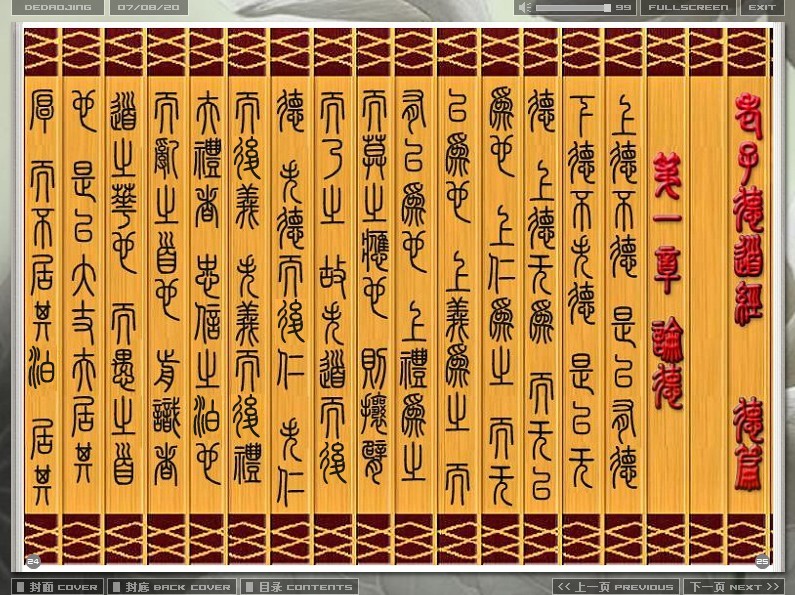 DEDAOJING
07/08/20
99
FULLSCREEN
EXIT
老子德道經 德篇
第一章 論德
上德不德 是以有德
下德不失德 是以无
德 上德无為 而无以
為也 上仁為之 而无
以為也 上義為之 而
有以為也 上禮為之
而莫之應也 則攘臂
而乃之 故失道而後
德 失德而後仁 失仁
而後義 失義而後禮
夫禮者 忠信之泊也
而亂之首也 前識者
道之華也 而愚之首
也 是以大丈夫居其
厚 而不居其泊 居其
24
25
封面 COVER
封底 BACK COVER
目录 CONTENTS
<< 上一页 PREVIOUS
下一页 NEXT >>